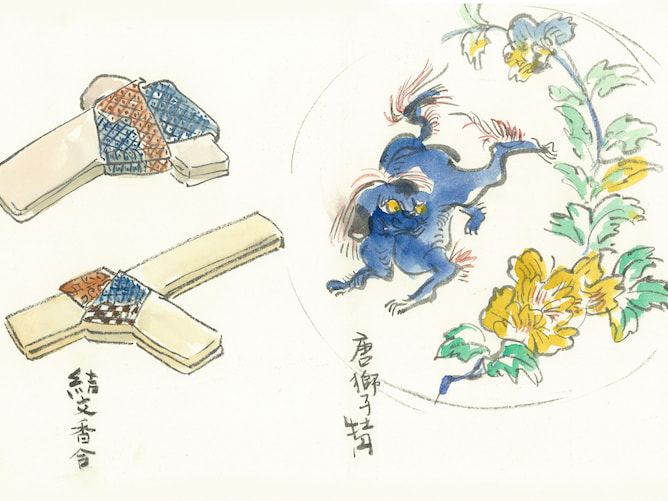 唐獅子牡丹
結文香合